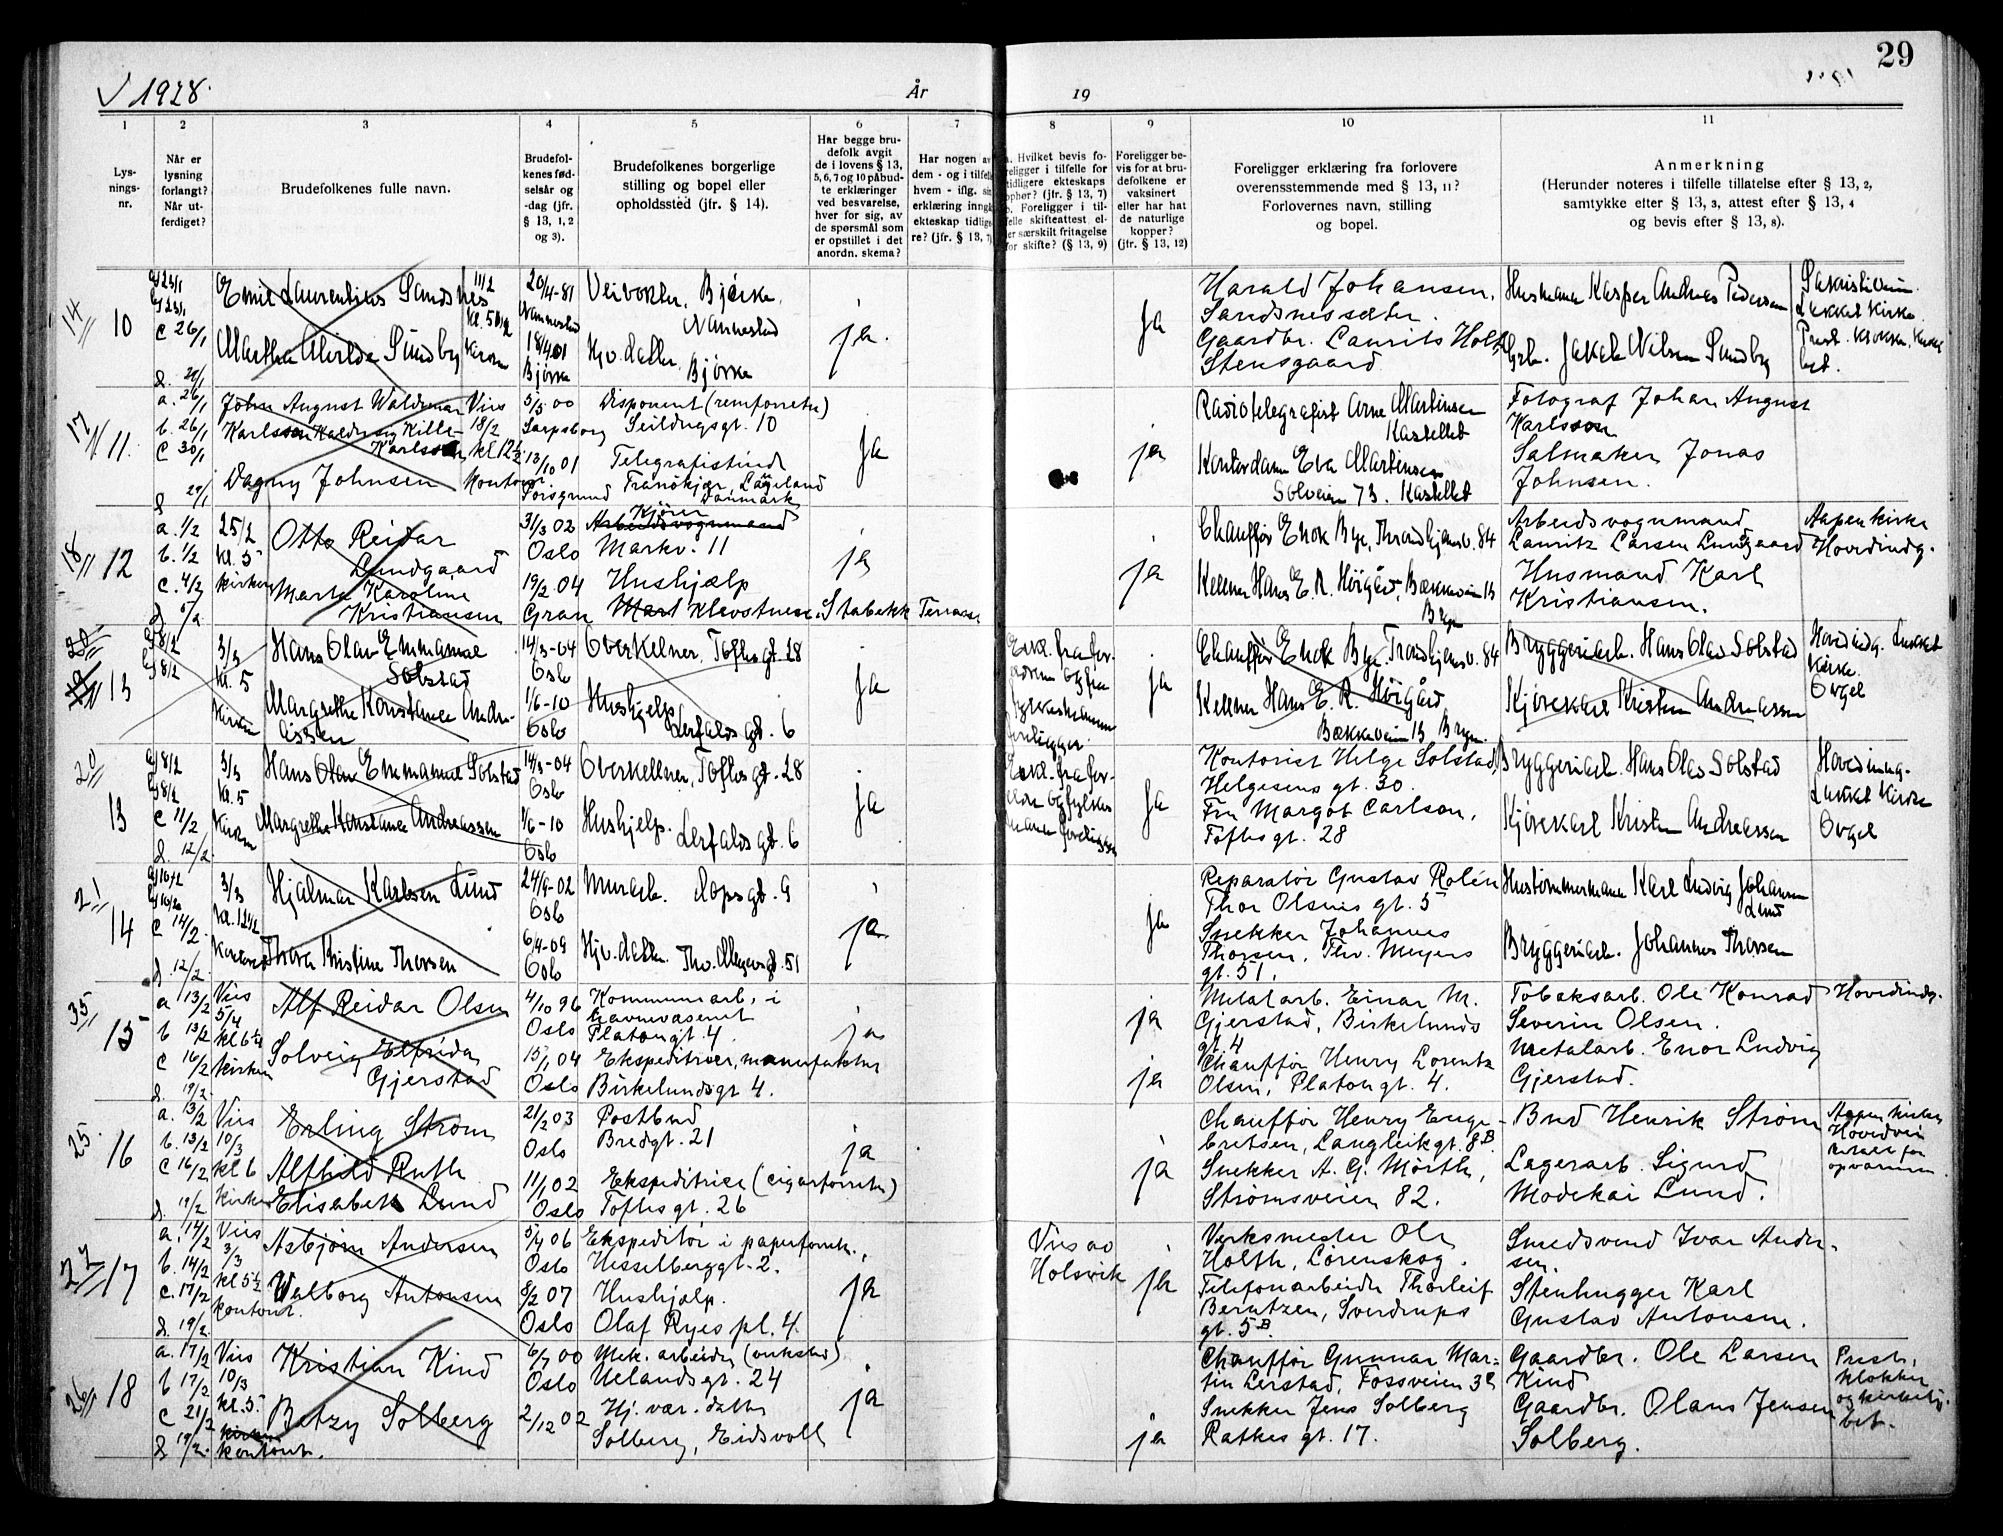 29
1928.
År
19
1
2
3
4
5
6
7
8
9
10
11
Lys-
nings-
nr.
Når er
lysning
forlangt?
Når ut-
ferdiget?
Brudefolkenes fulle navn.
Brudefol-
kenes fød-
selsår og
-dag (jfr.
§ 13, 1, 2
og 3).
Brudefolkenes borgerlige
stilling og bopel eller
opholdssted (jfr. § 14).
Har begge bru-
defolk avgit
de i lovens § 13,
5, 6, 7 og 10 påbud-
te erklæringer
ved besvarelse,
hver for sig, av
de spørsmål som
er opstillet i det
anordn. skema?
Har nogen av
dem - og i tilfelle
hvem - iflg. sin
erklæring inngå
ekteskap tidlige-
re? (jfr. § 13, 7)
a. Hvilket bevis fo-
religger i tilfelle for
tidligere ekteskaps
ophør? (jfr. § 13, 7)
b. Foreligger i til-
felle skifteattest el-
ler særskilt fritagelse
for skifte? (§ 13, 9)
Foreligger be-
vis for at bru-
defolkene er
vaksinert
eller har hat
de naturlige
kopper?
(jfr. § 13, 12)
Foreligger erklæring fra forlovere
overensstemmende med § 13, 11?
Forlovernes navn, stilling
og bopel.
Anmerkning
(Herunder noteres i tilfelle tillatelse efter § 13, 2,
samtykke efter § 13, 3, attest efter § 13, 4
og bevis efter § 13, 8).
14
10
a) 23/1
b) 23/1
c 26/1
Emil Laurentius Sandsnes
Martha Alvilde Sundby
11/2
Kirken
20/4-81
Nannestad
18/4 01
Bjørke
Veivokter, Bjørke,
Nannestad
Hjv. datter
Bjørke
ja.
ja
Harald Johansen,
Sandsnessæter.
Gaardbr. Laurits Holt
Stensgaard
Husmann Kasper Andreas Pedersen
Grb. Jakob Nilsen Sundby
Sakristiein
Lukket Kirke.
bet.
17
11.
a. 26/1
b. 26/1
c 30/1
d 29/1
John August Waldemar
Karlsson
Karlsson
Dagny Johnsen
Viis
18/2
kl 12½
Kontoret
5/5 00
Sarpsborg
13/10 01
Porsgrund
Disponent (remforretn)
Seildugsgt. 10
Telegrafistinde
Tranekjær, Langeland
Danmark
ja
ja
Radiotelegrafist Arne Martinsen
Kastellet
Kontordame Eva Martinsen
Solveien 73. Kastellet
Fotograf Johan August
Karlsson
Salmaker Jonas
Johnsen.
18
12
a. 1/2
b. 1/2
c. 4/2
25/2
Kl. 5
kirken
Otto Reidar
Lundgaard
Marta Karoline
Kristiansen
31/3 02
Oslo
19/2 04
Gran
Kjører
Arbeidsvognmand
Markv. 11
Hushjælp
Mart Klevstuen, Stabekk Terrasse
ja
ja
Chauffør Enok Bye, Trondhjemsv. 84
Kellner Hans E. R. Höigård, Bækkeveien 13
Bryn
Arbeidsvognmand
Lauritz Larsen Lundgaard
Husmand Karl
Kristiansen.
Aapen kirke
Hovedindg.
20
13
a) 8/2
b) 8/2
3/3
Kl. 5
Kirken
Hans Olav Emmanuel
Solstad
Margrethe Konstance Andre-
assen
14/3-04
Oslo
1/6-10
Oslo
Overkelner, Toftes gt. 28
Hushjelp
Lerfalds gt. 6
ja
ja
Chauffør Enok Bye Trondhjemsv. 84
Kellner Hans E. R. Höigård
Bækkeveien 13 Bryn
Bryggeriarb. Hans Olav Solstad
Kjørekarl Kristen Andreassen
Hovedindg. Lukket
Kirke.
Orgel
20
13
a) 8/2
b) 8/2
c 11/2
d. 12/2.
3/3
Kl. 5
Kirken
Hans Olav Emmanuel Solstad
Margrethe Konstance Andreassen
14/3-04
Oslo
1/6-10
Oslo
Overkellner, Toftes gt. 28
Hushjelp. Lerfalds gt. 6
ja
ja
Kontorist Helge Solstad,
Helgesens gt. 30.
Fru Margot Carlson,
Toftes gt. 28
Bryggeriarb. Hans Olav Solstad
Kjørekarl Kristen Andreassen
Hovedindg.
Lukket Kirke
Orgel
21
14
a) 10/2
b) 10/2
c 14/2.
d. 12/2.
3/3
Kontoret
Hjalmar Karlsen Lund
Thora Kristine Thorsen
24/9-02
Oslo
6/9-09
Oslo
Murarb. Rops gt. 9
Hjv. datter. Th. Meyers gt. 51
ja
ja
Reparatør Gustav Rolén
Thor Olsens gt. 5
Snekker Johannes
Thorsen, Thv. Meyers
gt. 51.
Hustømmermann Karl Ludvig Johansen
Lund
Bryggeriarb. Johannes Thorsen
35
15
a 13/2
b 13/2
c 16/2
d. 19/2.
Viis
5/4
kirken
Alf Reidar Olsen
Solveig Elfrida
Gjerstad
4/10 96
Oslo
15/1 04
Oslo
Kommunearb. i
havnevæsenet
Platous gt. 4.
Ekspeditrice, manufaktur
Birkelundsgt 4.
ja
ja
ja
Metalarb. Einar M.
Gjerstad, Birkelunds
gt. 4
Chauffør Henry Lorentz
Olsen, Platous gt. 4.
Tobaksarb. Ole Konrad
Severin Olsen.
Metalarb. Enor Ludvig
Gjerstad.
Hovedindg.
25.
16
a. 13/2
b. 13/2
c 16/2
d. 19/2
Viis
10/3
kl 6
Kirken
Erling Strøm
Alfhild Ruth
Elisabeth Lund
21/2 03
Oslo
11/1 02
Oslo
Postbud
Bredgt. 21
Ekspeditrice (cigarforretn)
Toftes gt. 26
ja
ja
Chauffør Henry Enge-
bretsen, Langleikgt. 8B
Snekker A. G. Mörth,
Strømsveien 82.
Bud Henrik Strøm
Lagerarb. Sigurd
Modekai Lund.
Aapen kirke
22
17
a. 14/2
b. 14/2
c. 17/2
d. 19/2.
Viis
3/3
kl 5½
kontoret.
Asbjørn Andersen
Valborg Antonsen
5/7 06
Oslo
8/2 07
Oslo
Ekspeditør i papirforretn.
Hesselberggt. 2.
Hushjælp.
Olaf Ryes pl. 4.
ja
Viis av
Holsvik
ja
Verksmester Ole
Holth, Lørenskog.
Telefonarbeider Thorleif
Berntzen, Sverdrups
gt. 5B.
Smedsvend Ivar Ander-
sen.
Stenhugger Karl
Gustav Antonsen.
26
18
a. 17/2
b 17/2
c 21/2
d 19/2.
Viis
10/3
kl. 5.
kirken
kontoret.
Kristian Kind
Betzy Solberg
6/7 00
Oslo
2/12 02
Mek. arbeider (verksted)
Uelands gt. 24
Hj. vær. datter
Solberg, Eidsvoll
ja
ja
Chauffør Gunnar Mar-
tin Lerstad, Fossveien
Snekker Jens Solberg
Ratkes gt. 17.
Gaardbr. Ole Larsen
Kind
Gaardbr. Olaus Jensen
Solberg.
Prest,
klokker
bet.